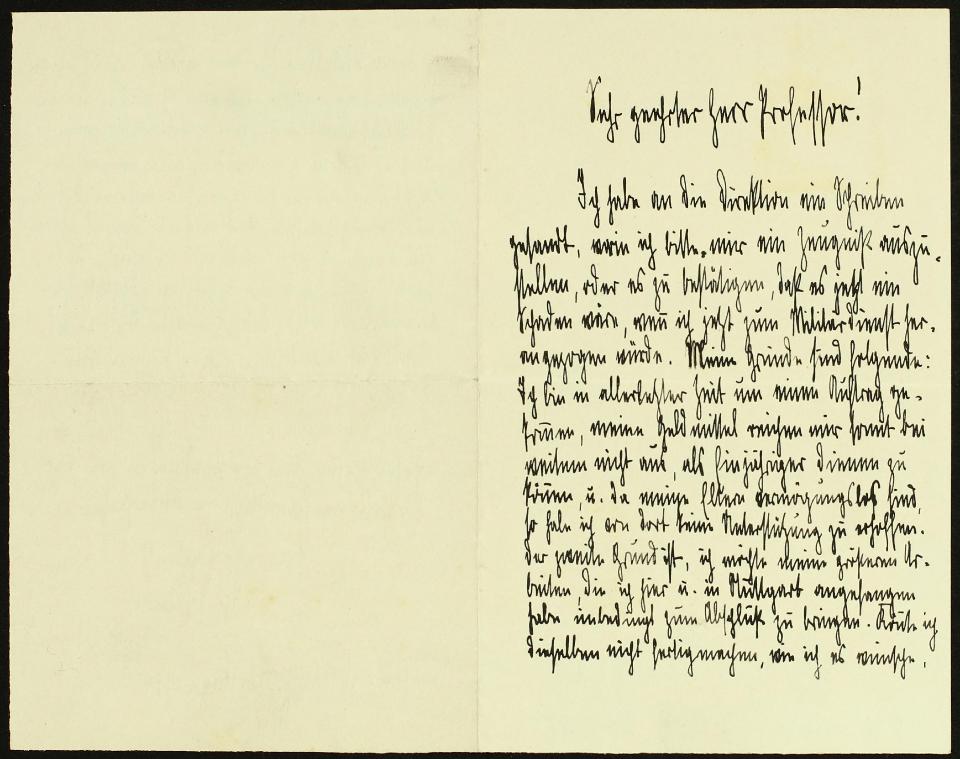 Sehr geehrter Herr Professor!
Ich habe an die Direktion ein Schreiben
gesandt, worin ich bitte, mir ein Zeugniß auszu-
stellen, oder es zu bestätigen, daß es jetzt ein
Schaden wäre, wenn ich jetzt zum Militärdienst her-
angezogen würde. Meine Gründe sind folgende:
Ich bin in allerletzter Zeit um einen Auftrag ge-
kom̅en, meine Geldmittel reichen mir somit bei
weitem nicht aus, als Einjähriger dienen zu
kön̅en, u. da meine Eltern vermögungslos sind,
so habe ich von dort keine Unterstützung zu erhoffen.
Der zweite Grund ist, ich möchte meine größeren Ar-
beiten, die ich hier u. in Stuttgart angefangen
habe unbedingt zum Abschluß zu bringen. Kön̅te ich
dieselben nicht fertigmachen, wie ich es wünsche,